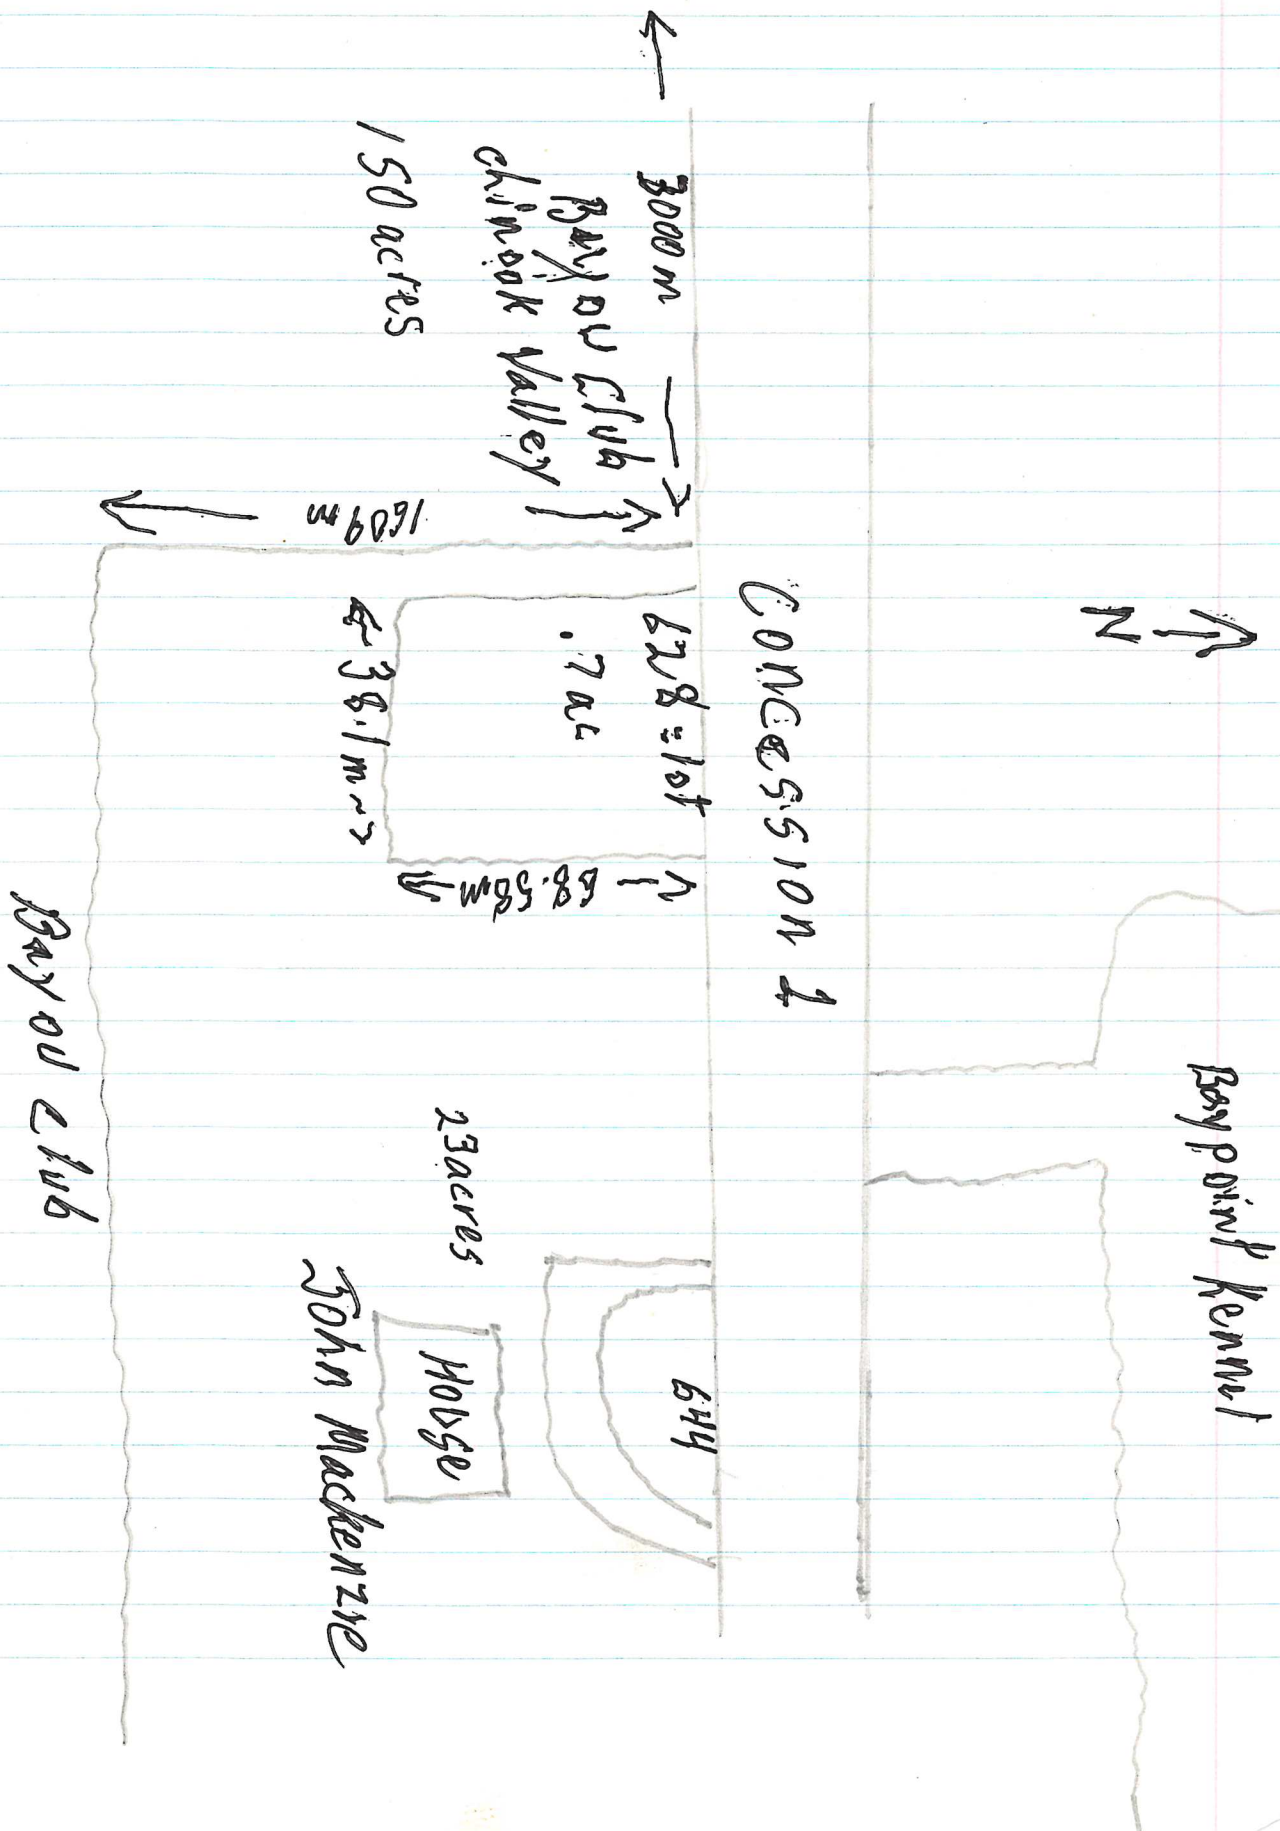 N
Baypoint Kennel
Concession 1
3000 m
Bayou Club
chinook Valley
150 acres
1609 m
628 = lot
.7 ac
38.1 m
68.58 m
644
House
23 acres
John Mackenzie
Bayou club